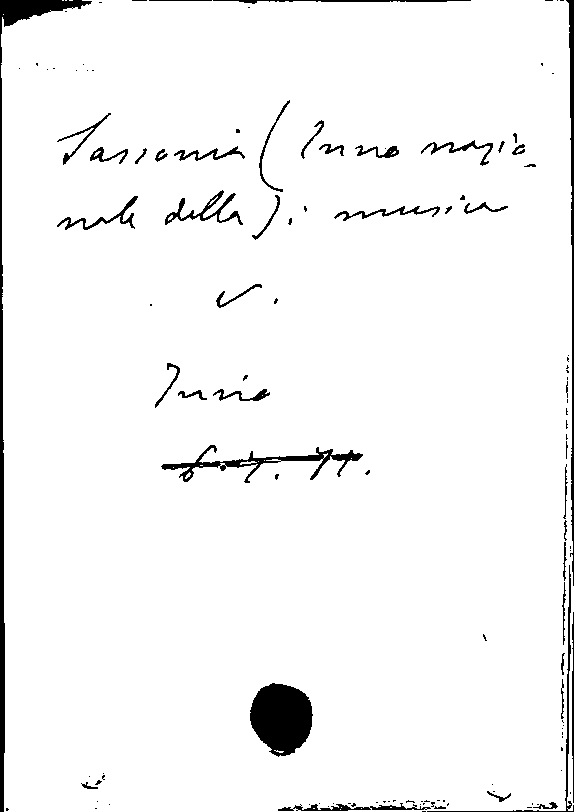 Sassonia (Inno nazio-
nale della): musica
v.
Inno
6.7.71.